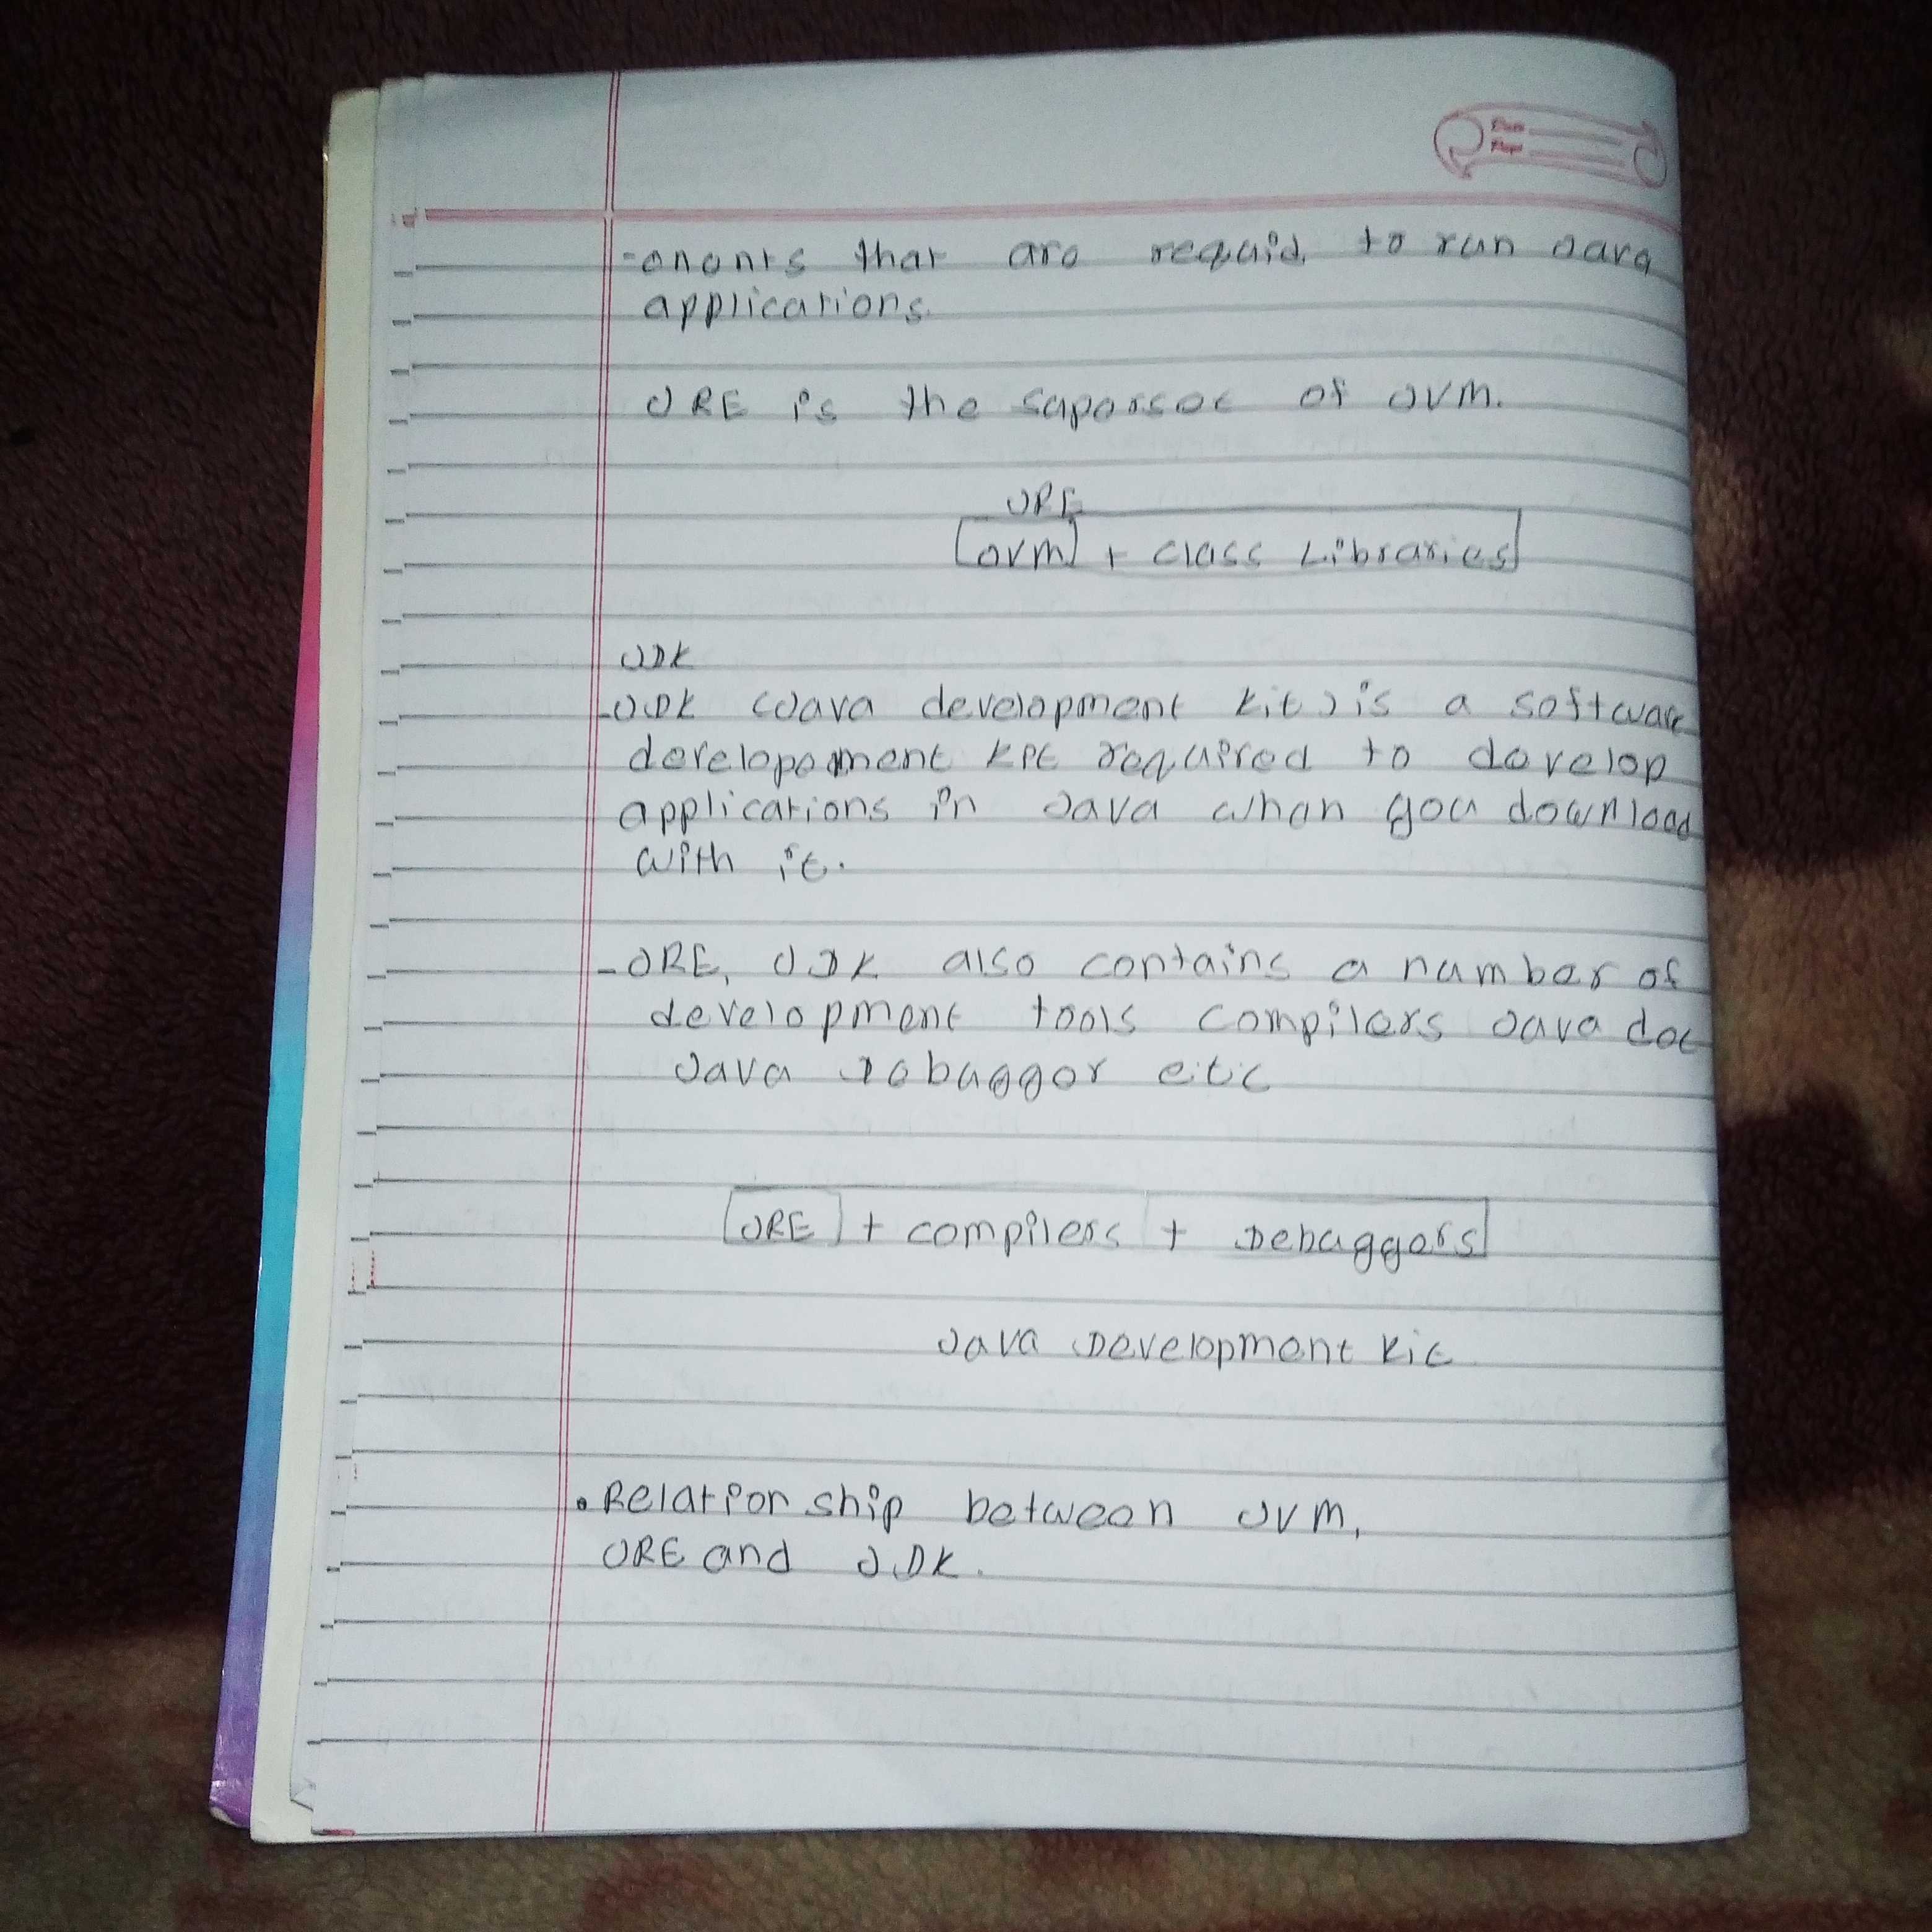 Date
Page
-onents that are requid to run Java
applications.
JRE is the superset of JVM.
JRE
JVM + class Libraries
JDK
-JDK (Java development kit) is a software
developement kit required to develop
applications in Java when you download
with it.
-JRE, JDK also contains a number of
development tools compilers Java doc
Java Debugger etc
JRE + compilers + Debuggers
Java Development kit
• Relationship between JVM,
JRE and JDK.